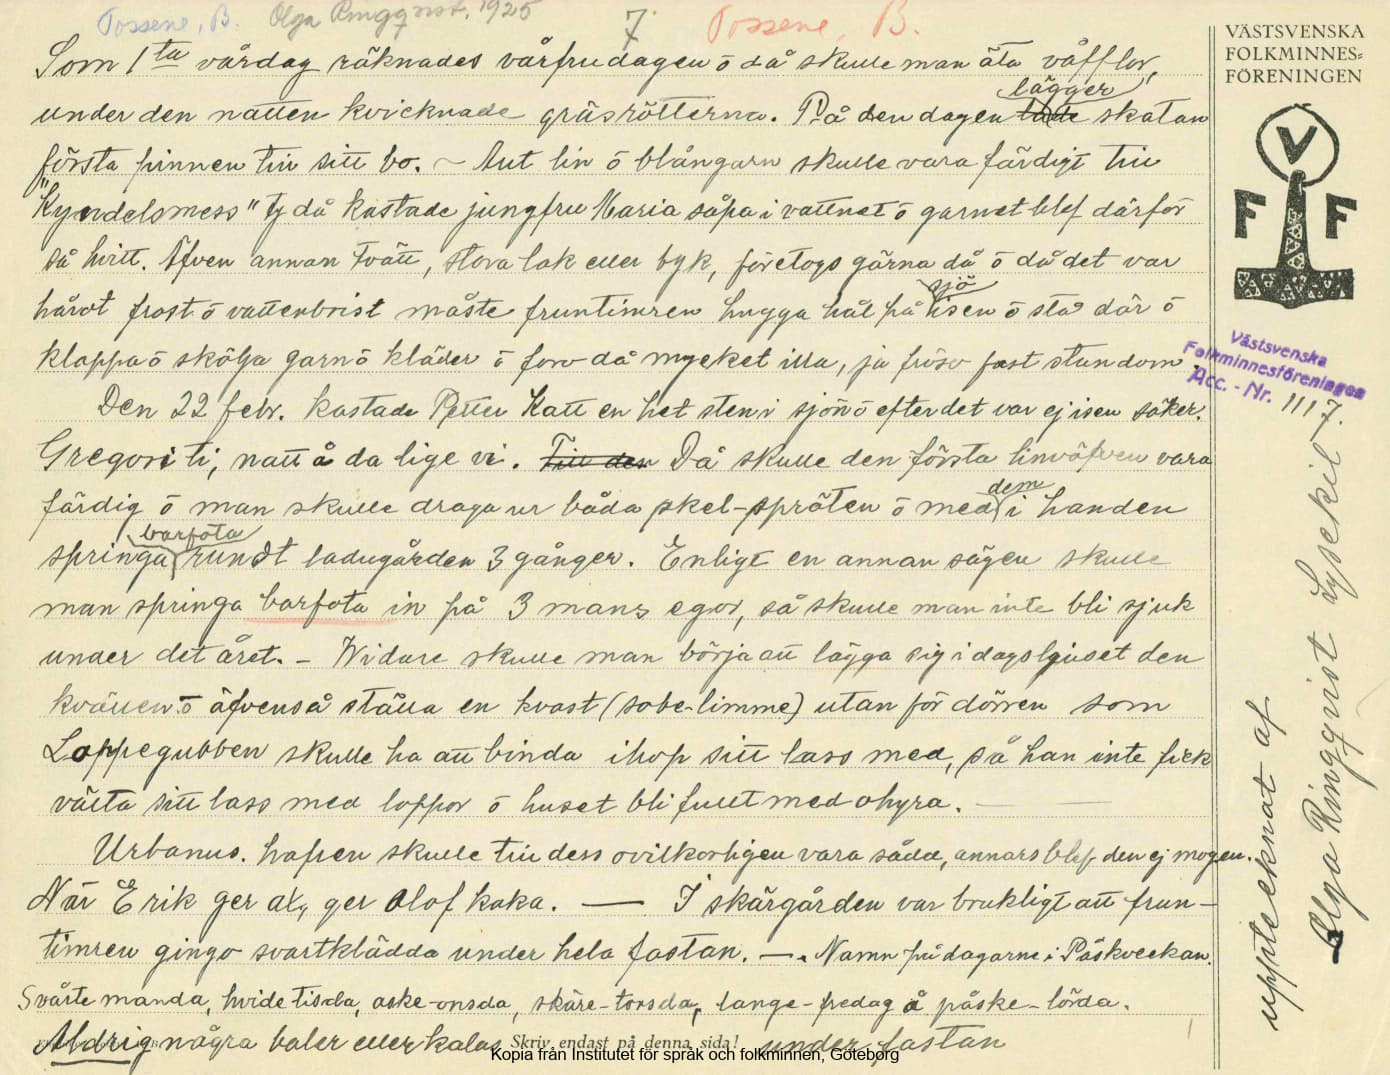 Tossene, B. Olga Ringqvist, 1925 7. Tossene, B.
Som 1ta vårdag räknades vårfrudagen ö då skulle man äta våfflor,
under den natten kvicknade gräsrötterna. På den dagen lägger skatan
första pinnen till sitt bo. ~ Allt lin ö blångarn skulle vara färdigt till
"Kyndelsmess" ty då kastade jungfru Maria såpa i vattnet ö garnet blef därför
så hvitt. Äfven annan tvätt, stora lak eller byk, företogs gärna då ö då det var
hårdt frost ö vattenbrist måste fruntimren hugga hål på sjöisen ö stå där ö
klappa ö skölja garn ö kläder ö foro då mycket illa, ja fröso fast stundom.
Den 22 febr. kastade Petter Katt en het sten i sjön ö efter det var ej isen säker.
Gregori ti, natt å da lige vi. Till den Då skulle den första linväfven vara
färdig ö man skulle draga ur båda skel-spröten ö med dem i handen
springa barfota rundt ladugården 3 gånger. Enligt en annan sägen skulle
man springa barfota in på 3 mans egor, så skulle man inte bli sjuk
under det året. – Vidare skulle man börja att lägga sig i dagsljuset den
kvällen ö äfvenså ställa en kvast (sobe-limme) utan för dörren som
Loppegubben skulle ha att binda ihop sitt lass med, så han inte fick
välta sitt lass med loppor ö huset bli fullt med ohyra. —
Urbanus. hapen skulle till dess ovilkorligen vara sådd, annars blef den ej mogen.
När Erik ger ax, ger Olof kaka. — I skärgården var brukligt att frun-
timren gingo svartklädda under hela fastan. —. Namn på dagarne i Påskveckan.
Svarte manda, hvide tisda, aske-onsda, skäre-torsda, lange-fredag å påske-lörda.
Aldrig några baler eller kalas under fastan
Skriv endast på denna sida!
Kopia från Institutet för språk och folkminnen, Göteborg
VÄSTSVENSKA
FOLKMINNES=
FÖRENINGEN
V
F F
Västsvenska
Folkminnesföreningen
Acc. - Nr. 1117.
upptecknat af
Olga Ringqvist Lysekil